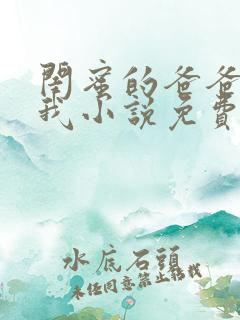 閨蜜的爸爸
我小說免費
水底石頭
未经同意禁止转载